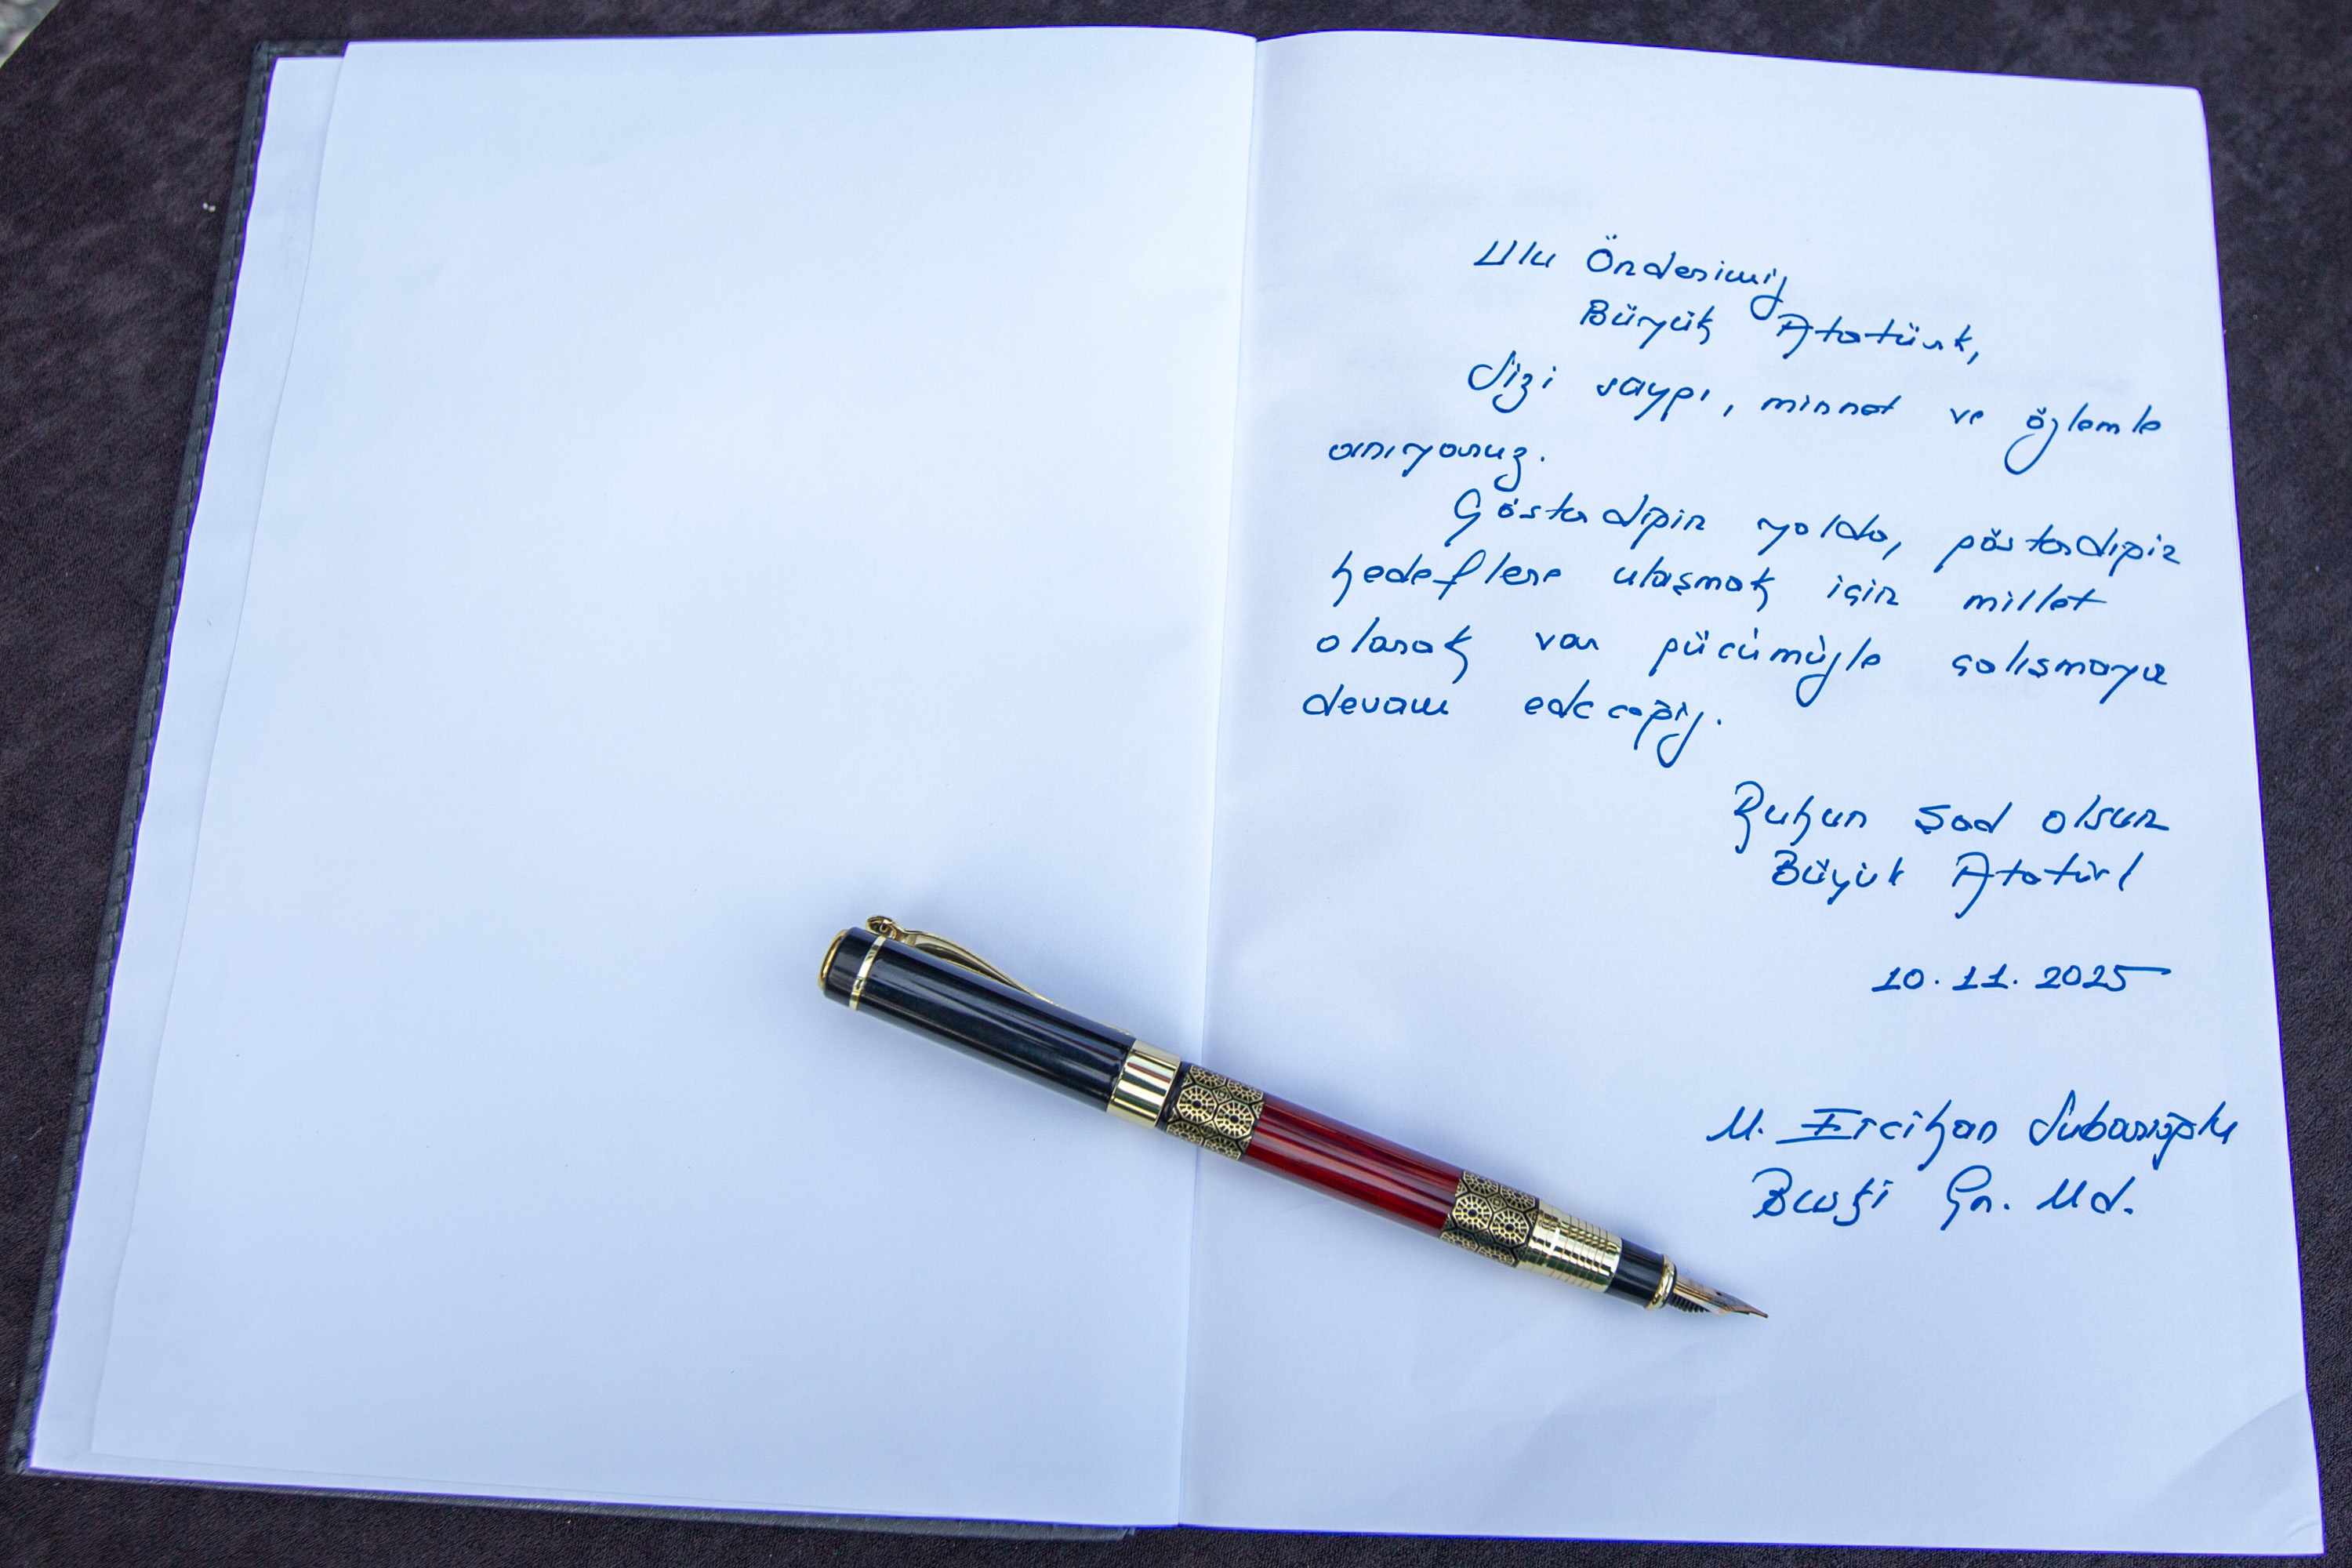 Ulu Önderimiz
Büyük Atatürk,
Sizi saygı, minnet ve özlemle
anıyoruz.
Gösterdiğin yolda, gösterdiğin
hedeflere ulaşmak için millet
olarak var gücümüzle çalışmaya
devam edeceğiz.
Ruhun Şad olsun
Büyük Atatürk
10.11.2025
M. Ercihan Subaşıoğlu
Buski Gn. Md.